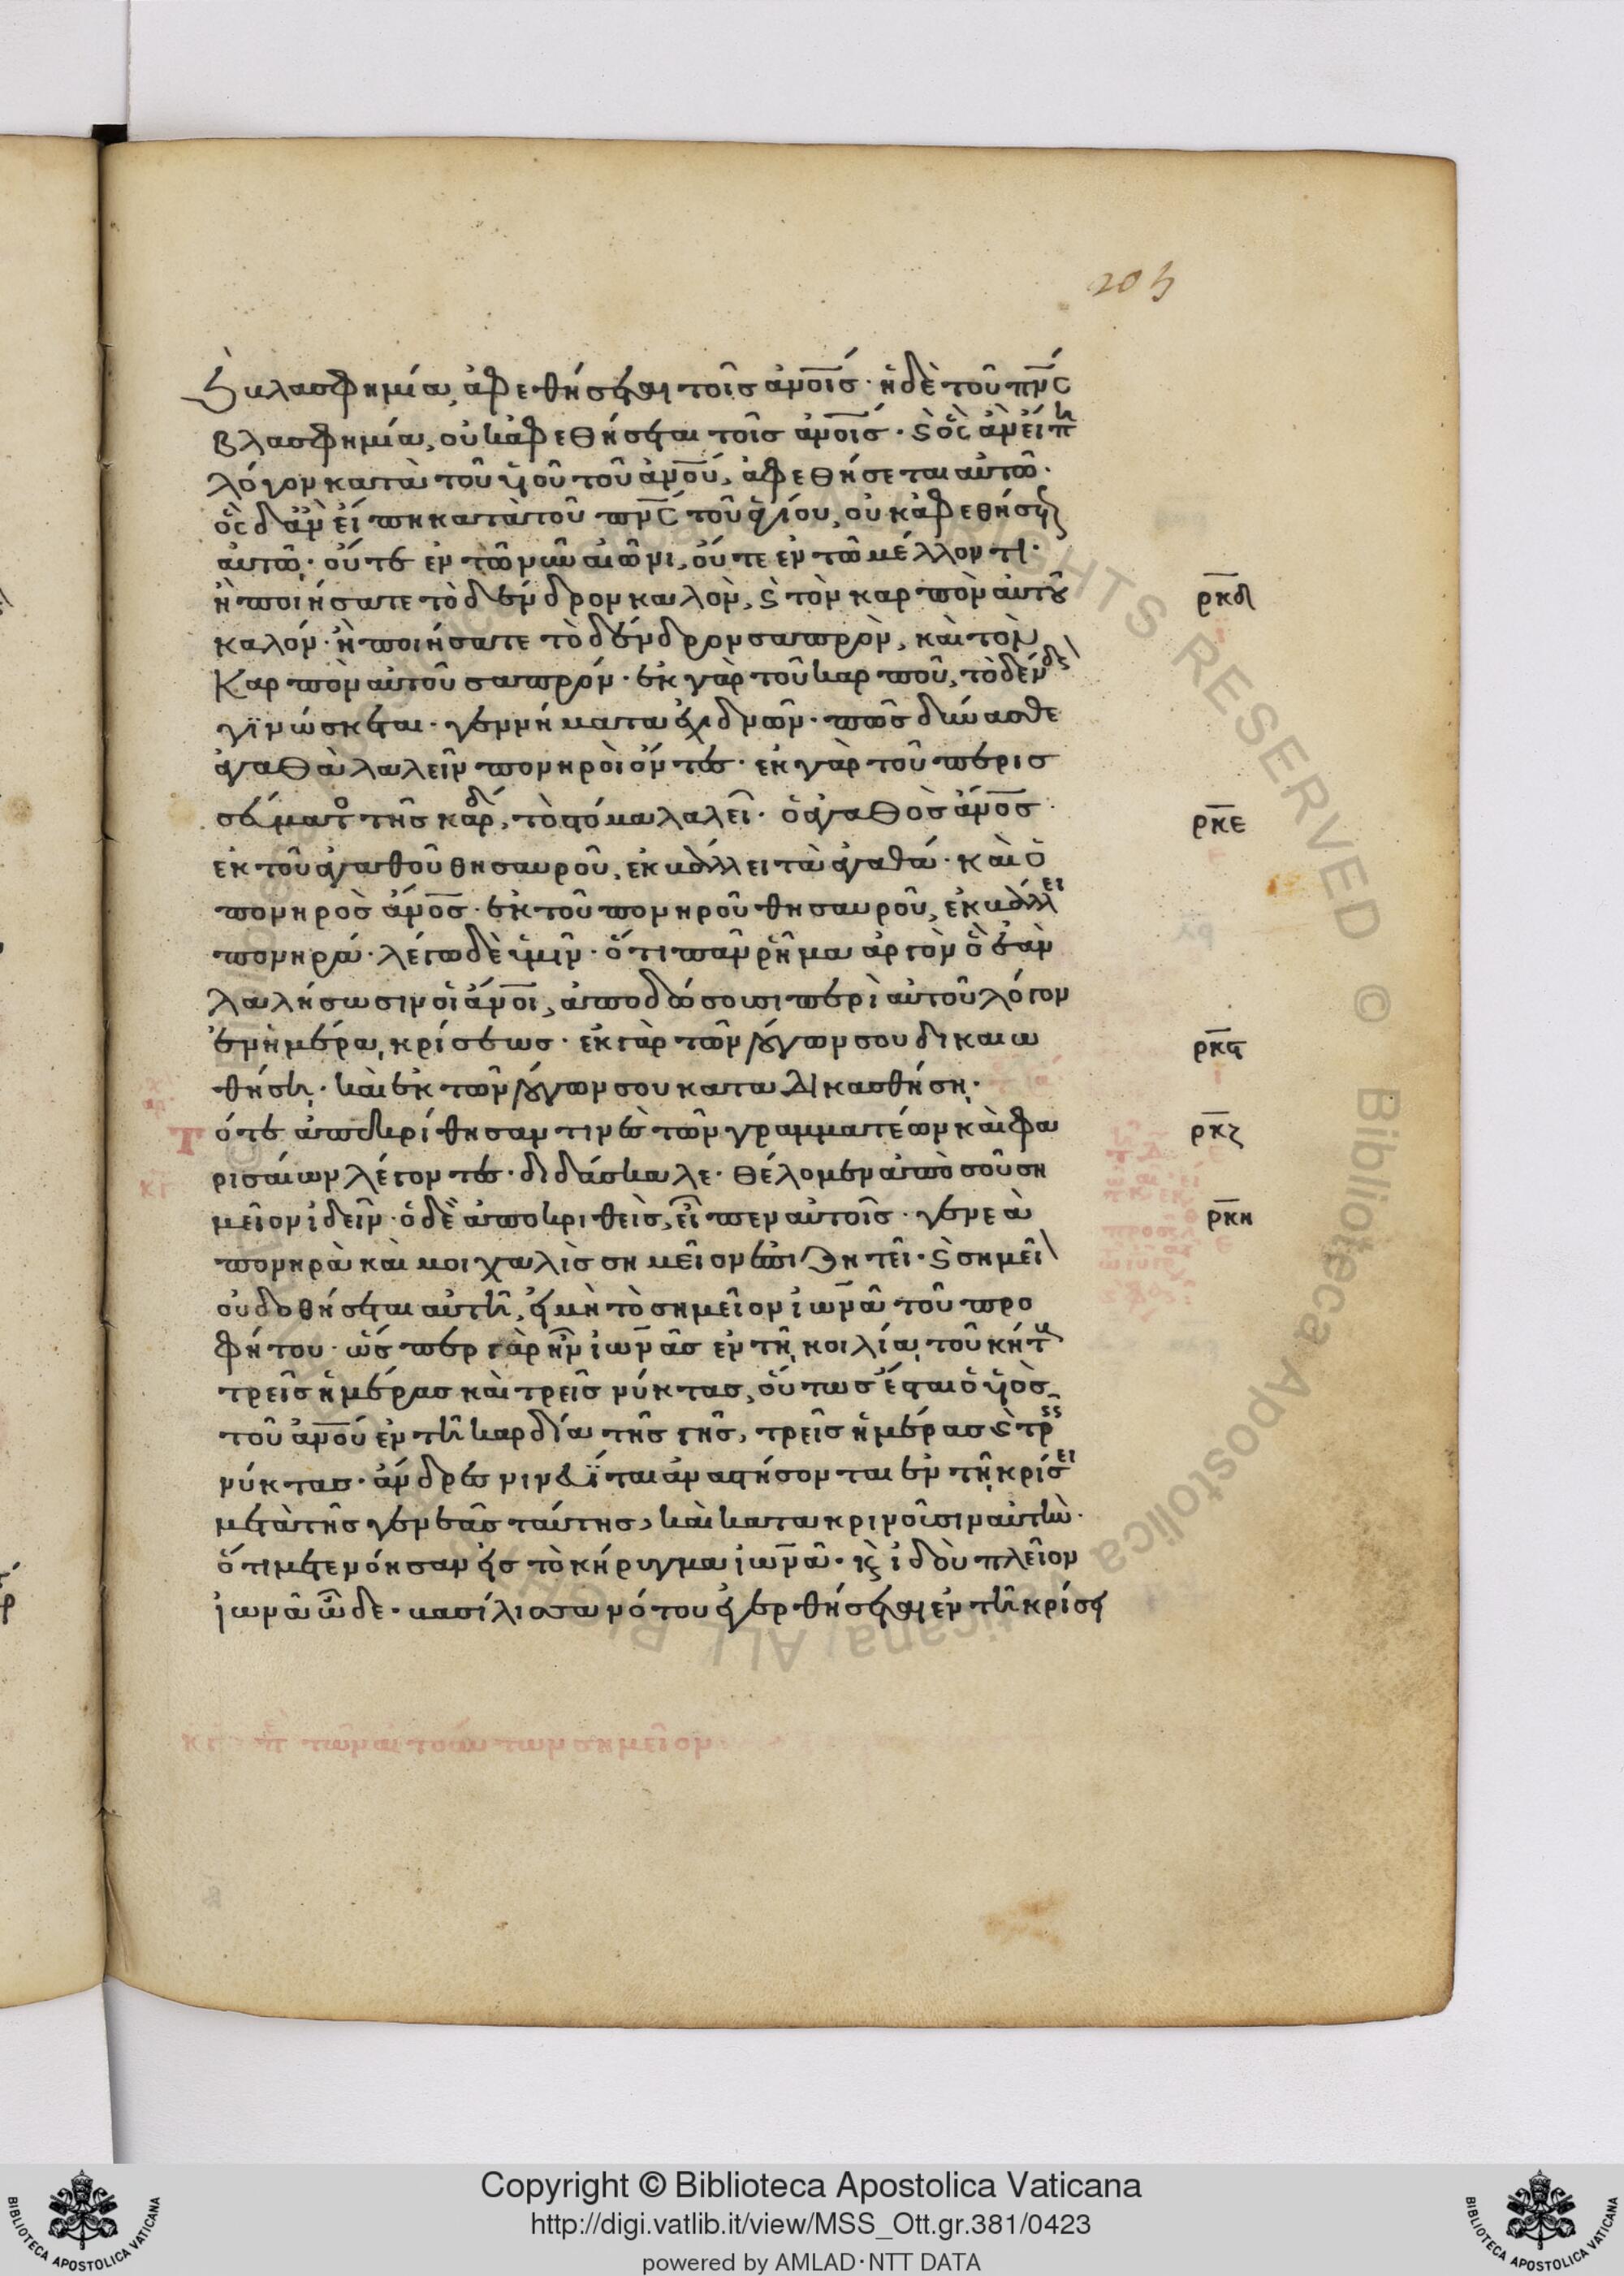 205
Ϛ βλασφημία, ἀφεθήσεται τοῖς ἀν̅ο̅ις· ἡ δὲ τοῦ πν̅ς
βλασφημία, οὐκ ἀφεθήσεται τοῖς ἀν̅ο̅ις· Ϛ ὃς ἂν εἴπη
λόγον κατὰ τοῦ υἱοῦ τοῦ ἀν̅ο̅υ, ἀφεθήσεται αὐτῶ·
ὃς δ' ἂν εἴπη κατὰ τοῦ πν̅ς τοῦ ἁγίου, οὐκ ἀφεθήσεται
αὐτῶ· οὔτε ἐν τῶ νῦν αἰῶνι, οὔτε ἐν τῶ μέλλοντι·
ἢ ποιήσατε τὸ δένδρον καλὸν, Ϛ τὸν καρπὸν αὐτοῦ
ρκδ
καλόν· ἢ ποιήσατε τὸ δένδρον σαπρὸν, καὶ τὸν
καρπὸν αὐτοῦ σαπρόν· ἐκ γὰρ τοῦ καρποῦ, τὸ δένδρον
γϊνώσκεται· γεννήματα ἐχιδνῶν· πῶς δύνασθε
ἀγαθὰ λαλεῖν πονηροὶ ὄντες· ἐκ γὰρ τοῦ περισ
σεύματος τῆς καρδίας, τὸ στόμα λαλεῖ· ὁ ἀγαθὸς ἄν̅ο̅ς
ρκε
ἐκ τοῦ ἀγαθοῦ θησαυροῦ, ἐκβάλλει τὰ ἀγαθά· καὶ ὁ
πονηρὸς ἄν̅ο̅ς· ἐκ τοῦ πονηροῦ θησαυροῦ, ἐκβάλλει
πονηρά· λέγω δὲ ὑμῖν· ὅτι πᾶν ῥῆμα ἀργὸν ὃ ἐὰν
λαλήσωσιν οἱ ἄν̅ο̅ι, ἀποδώσουσι περὶ αὐτοῦ λόγον
ἐν ἡμέρα κρίσεως· ἐκ γὰρ τῶν λόγων σου δικαιω
ρκϛ
θήση· καὶ ἐκ τῶν λόγων σου καταδικασθήση·
Τότε ἀπεκρίθησαν τινὲς τῶν γραμματέων καὶ φα
ρκζ
ρισαίων λέγοντες· διδάσκαλε· θέλομεν ἀπὸ σοῦ ση
μεῖον ἰδεῖν· ὁ δὲ ἀποκριθεὶς, εἶπεν αὐτοῖς· γενεὰ
ρκη
πονηρὰ καὶ μοιχαλὶς σημεῖον ἐπιζητεῖ· Ϛ σημεῖον
οὐ δοθήσεται αὐτῆ, εἰ μὴ τὸ σημεῖον ἰωνᾶ τοῦ προ
φήτου· ὥσπερ γὰρ ἦν ἰωνᾶς ἐν τῆ κοιλία τοῦ κήτους
τρεῖς ἡμέρας καὶ τρεῖς νύκτας, οὕτως ἔσται ὁ υἱὸς
τοῦ ἀν̅ο̅υ ἐν τῆ καρδία τῆς γῆς, τρεῖς ἡμέρας Ϛ τρεῖς
νύκτας· ἄνδρες νινευῖται ἀναστήσονται ἐν τῆ κρίσει
μετὰ τῆς γενεᾶς ταύτης, καὶ κατακρινοῦσιν αὐτὴν·
ὅτι μετενόησαν εἰς τὸ κήρυγμα ἰωνᾶ· Ϛ ἰδοὺ πλεῖον
ἰωνᾶ ὧδε· βασίλισσα νότου ἐγερθήσεται ἐν τῆ κρίσει
τῶν αἰτούντων σημεῖον
Copyright © Biblioteca Apostolica Vaticana
http://digi.vatlib.it/view/MSS_Ott.gr.381/0423
powered by AMLAD·NTT DATA
BIBLIOTECA APOSTOLICA VATICANA
BIBLIOTECA APOSTOLICA VATICANA